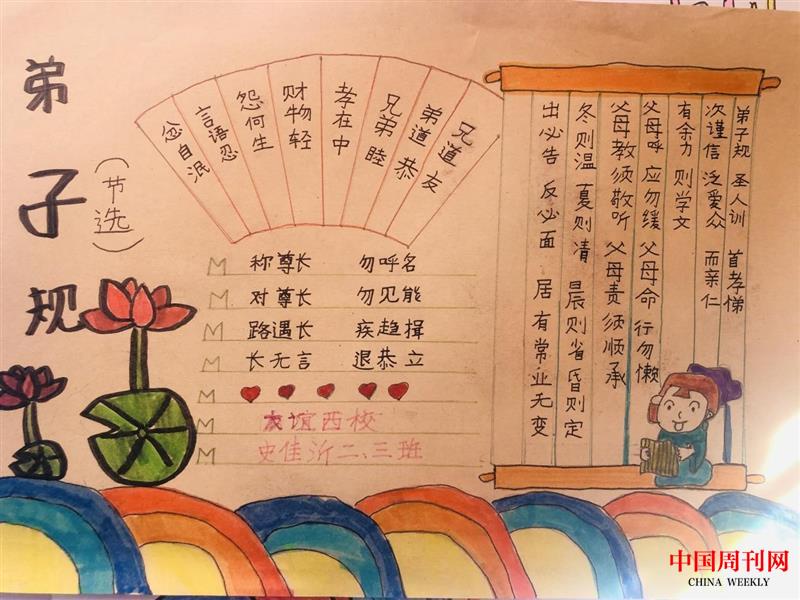 弟子规
（节选）
兄道友
弟道恭
兄弟睦
孝在中
财物轻
怨何生
言语忍
忿自泯
弟子规 圣人训 首孝悌
次谨信 泛爱众 而亲仁
有余力 则学文
父母呼 应勿缓 父母命 行勿懒
父母教 须敬听 父母责 须顺承
冬则温 夏则清 晨则省 昏则定
出必告 反必面 居有常 业无变
称尊长 勿呼名
对尊长 勿见能
路遇长 疾趋揖
长无言 退恭立
友谊西校
史佳沂二、三班
中国周刊网
CHINA WEEKLY